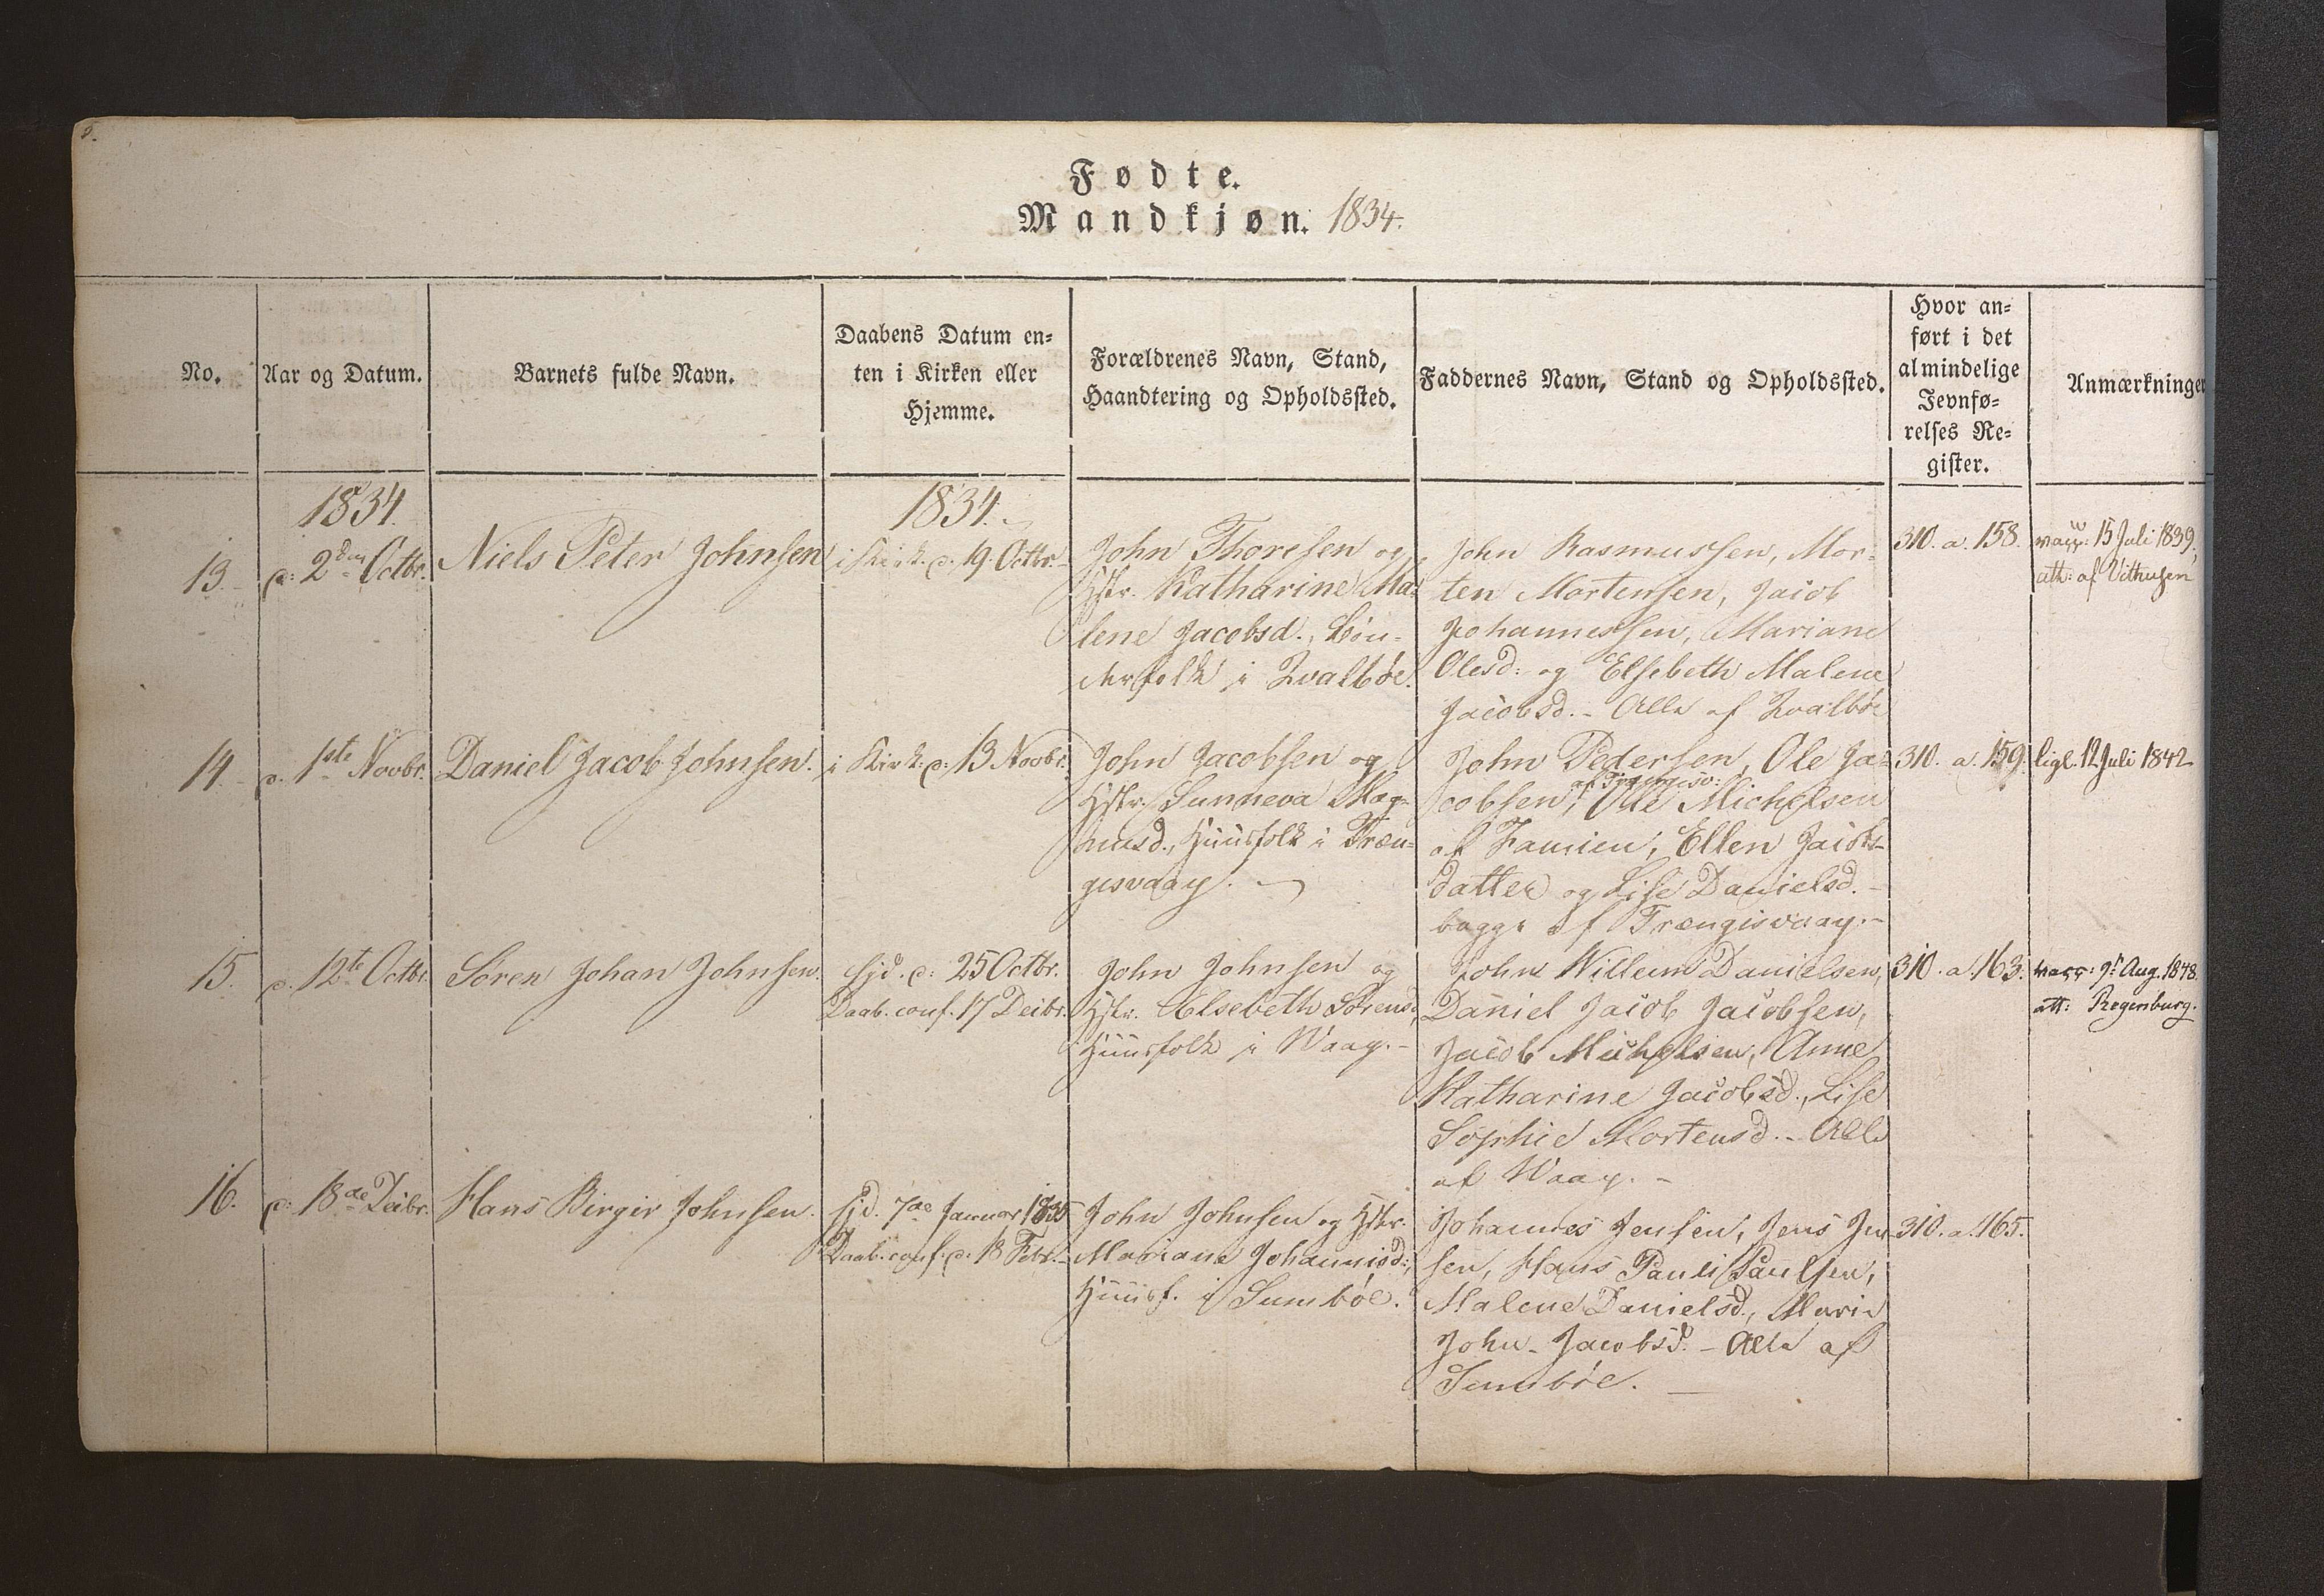 Fødte.
Mandkjøn. 1834.
No.
Aar og Datum.
Barnets fulde Navn.
Daabens Datum en=
ten i Kirken eller
Hjemme.
Forældrenes Navn, Stand,
Haandtering og Opholdssted.
Faddernes Navn, Stand og Opholdssted.
Hvor an=
ført i det
almindelige
Jevnfø=
relses Re=
gister.
Anmærkninger
1834.
1834.
13.
d: 2den Octbr.
Niels Peter Johnsen
i Kirk. d. 19. Octbr.
John Thoresen og
Hstr. Katharine Ma=
lene Jacobsd., Bön=
derfolk i Qvalböe.
John Rasmussen, Mor-
ten Mortensen, Jacob
Johannessen, Mariane
Olesd: og Elsebeth Malene
Jacobsd. - Alle af Qvalböe
310. a. 158.
vacc: 15 Juli 1839,
att: af Vithusen
14.
d. 1ste Novbr.
Daniel Jacob Johnsen.
i Kirk: d: 13 Novbr.
John Jacobsen og
Hstr. Sunneva Mag-
nusd., Huusfolk i Træn=
gisvaag.
John Pedersen, Ole Ja=
af Trængisv:
cobsen, Ole Michelsen
af Famien, Ellen Jacobs-
datter og Lise Danielsd. -
begge af Trængisvaag. -
310. a. 159.
ligl. 12 Juli 1842
15.
d. 12te Octbr.
Sören Johan Johnsen.
Hjd. d: 25 Octbr.
Daab. conf. 17 Decbr.
John Johnsen og
Hstr. Elsebeth Sörensd,
Huusfolk i Waag. -
John Willum Danielsen,
Daniel Jacob Jacobsen,
Jacob Michelsen, Anne
Katharine Jacobsd., Lise
Sophie Mortensd. - Alle
af Waag. -
310. a. 163.
vacc: 9r Aug. 1848.
att: Regenburg.
16.
d: 18de Decbr.
Hans Birgir Johnsen.
Hjd. 7de Januar 1835
Daab. conf. d. 18 Febr. -
John Johnsen og Hstr.
Mariane Johannisd:,
Huusf. i Sumböe.
Johannes Jensen, Jens Jen-
sen, Hans Pauli Paulsen,
Malene Danielsd., Marie
John- Jacobsd. - Alle af
Sumböe.
310. a. 165.